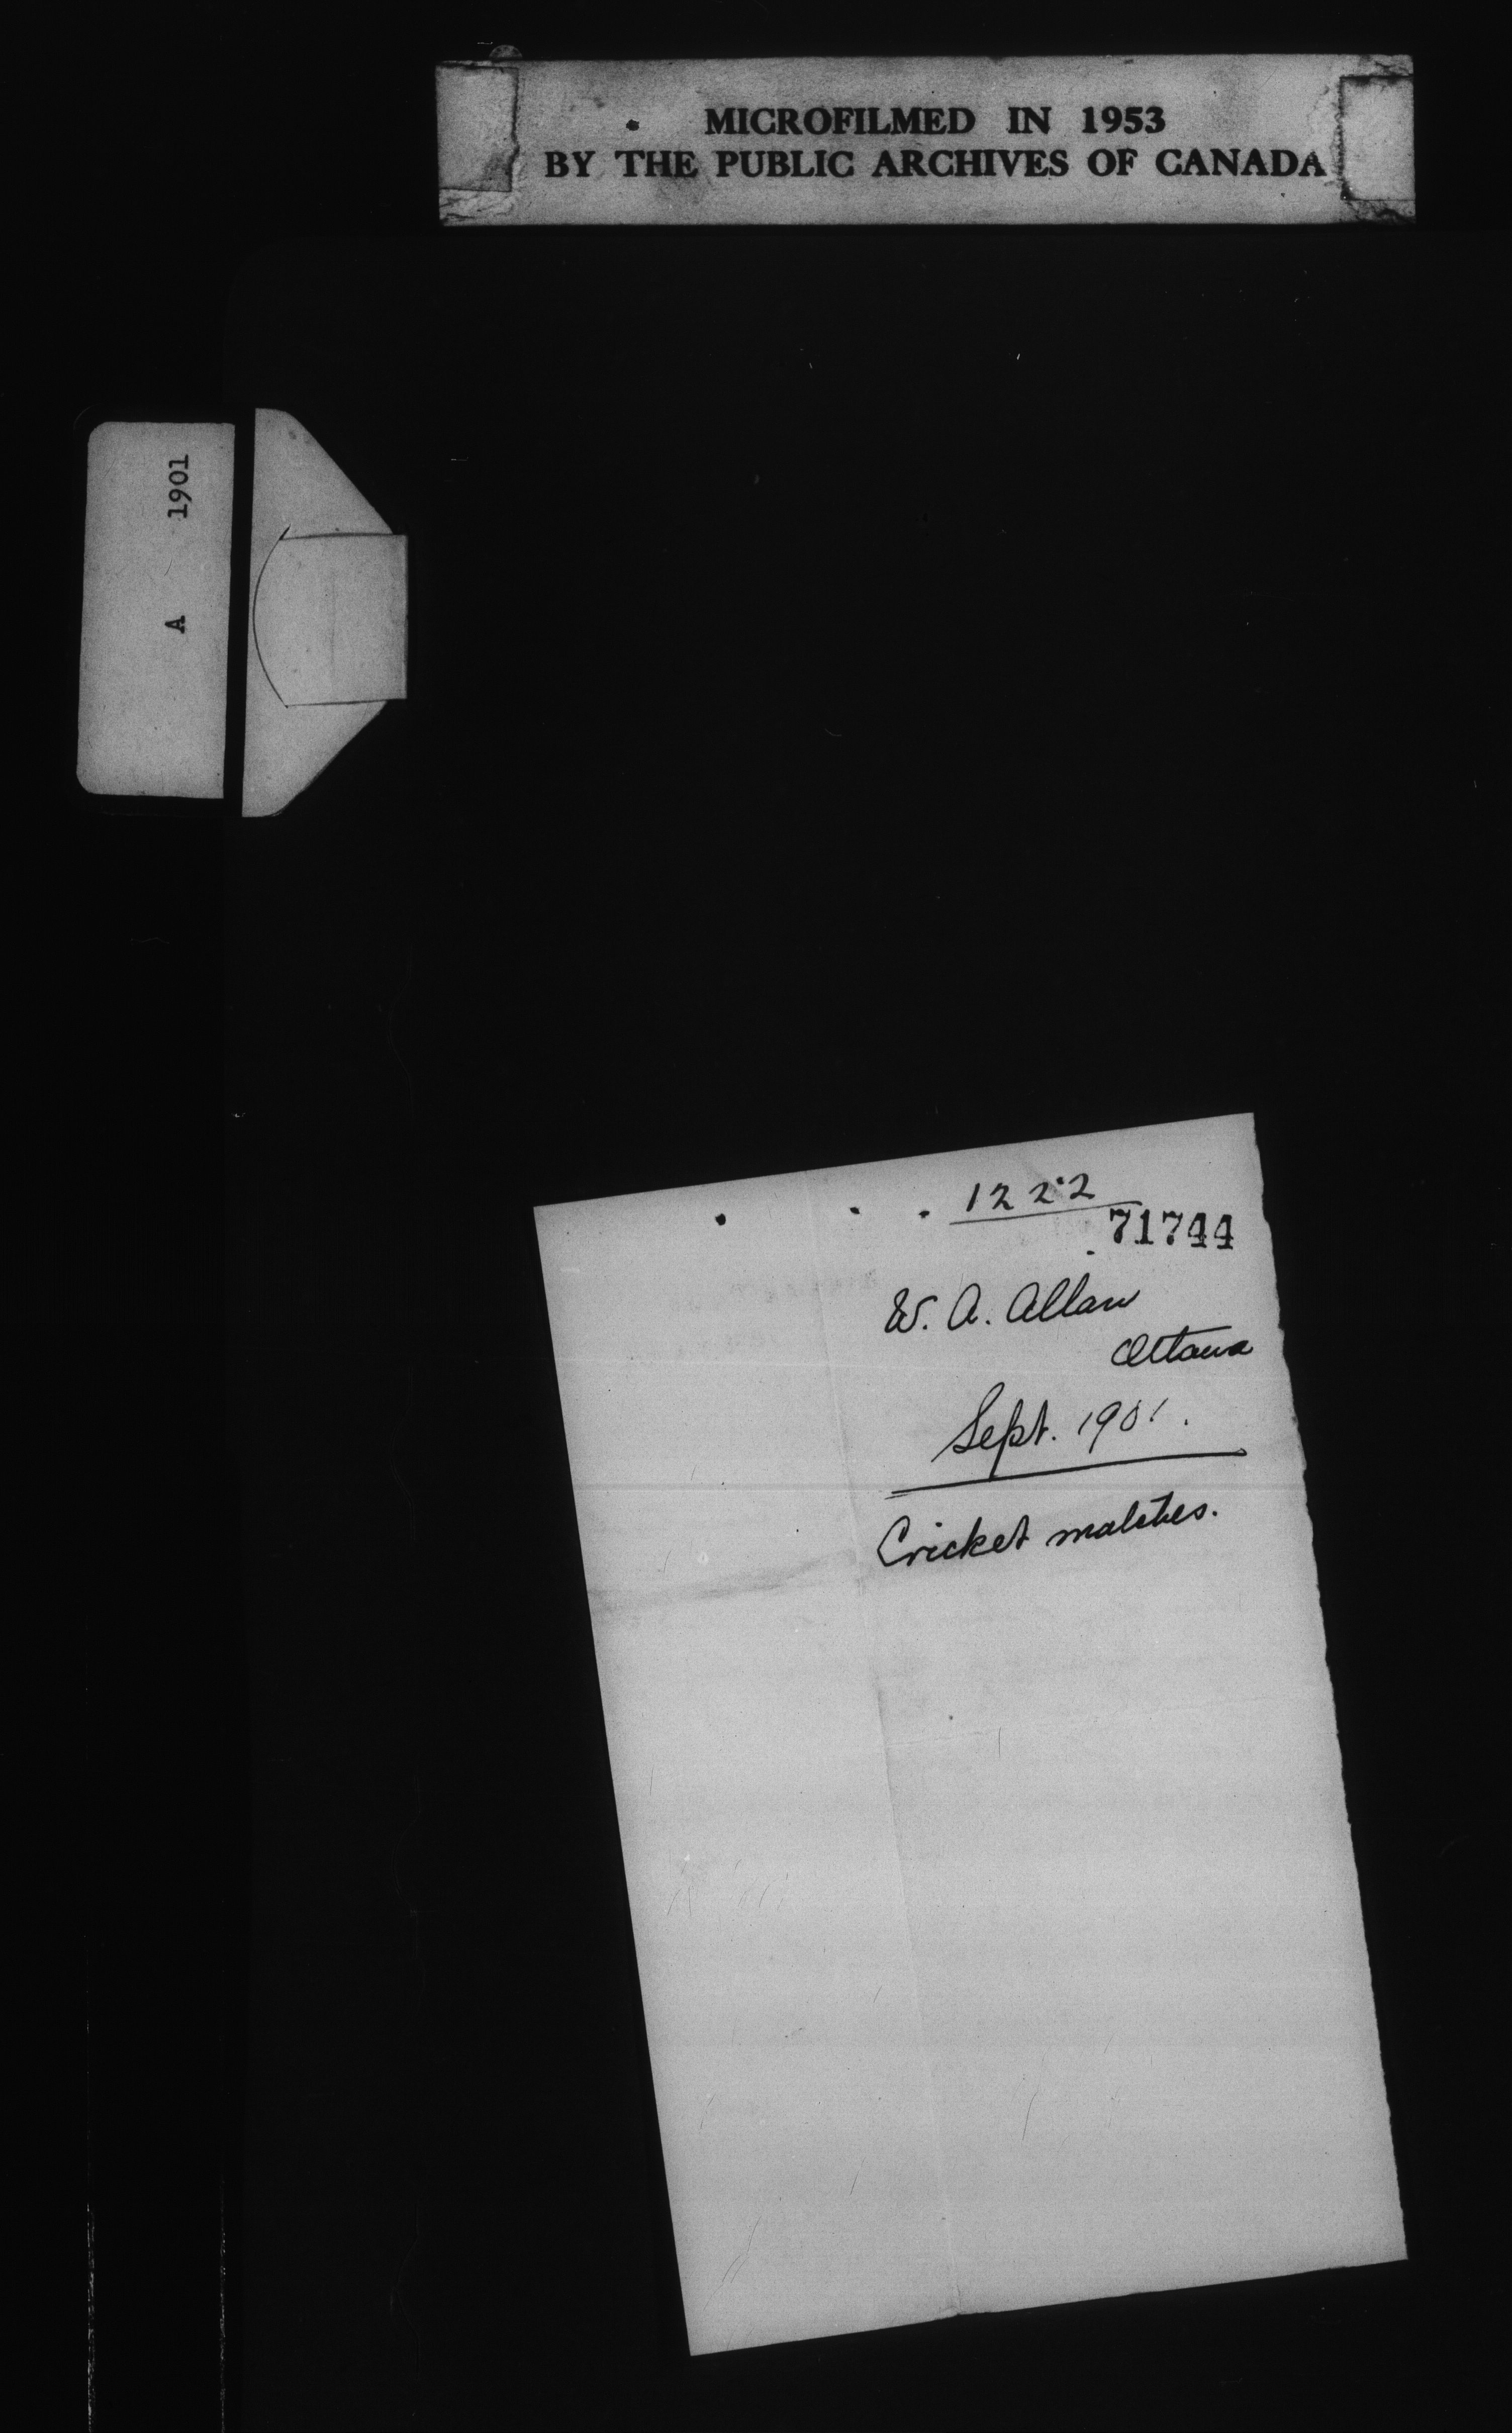 MICROFILMED IN 1953
BY THE PUBLIC ARCHIVES OF CANADA
A 1901
1222
71744
W. A. Allan
Ottawa
Sept. 1901.
Cricket matches.